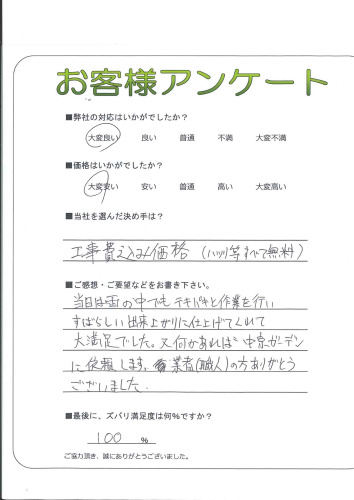 お客様アンケート
■弊社の対応はいかがでしたか?
大変良い 良い 普通 不満 大変不満
■価格はいかがでしたか?
大変安い 安い 普通 高い 大変高い
■当社を選んだ決め手は?
工事費込み価格 (ハツリ等すべて無料)
■ご感想・ご要望などをお書き下さい。
当日は雪の中でもテキパキと作業を行い
すばらしい出来上がりに仕上げてくれて
大満足でした。又何かあれば中京ガーデン
に依頼します。業者(職人)の方ありがとう
ございました。
■最後に、ズバリ満足度は何%ですか?
100 %
ご協力頂き、誠にありがとうございました。